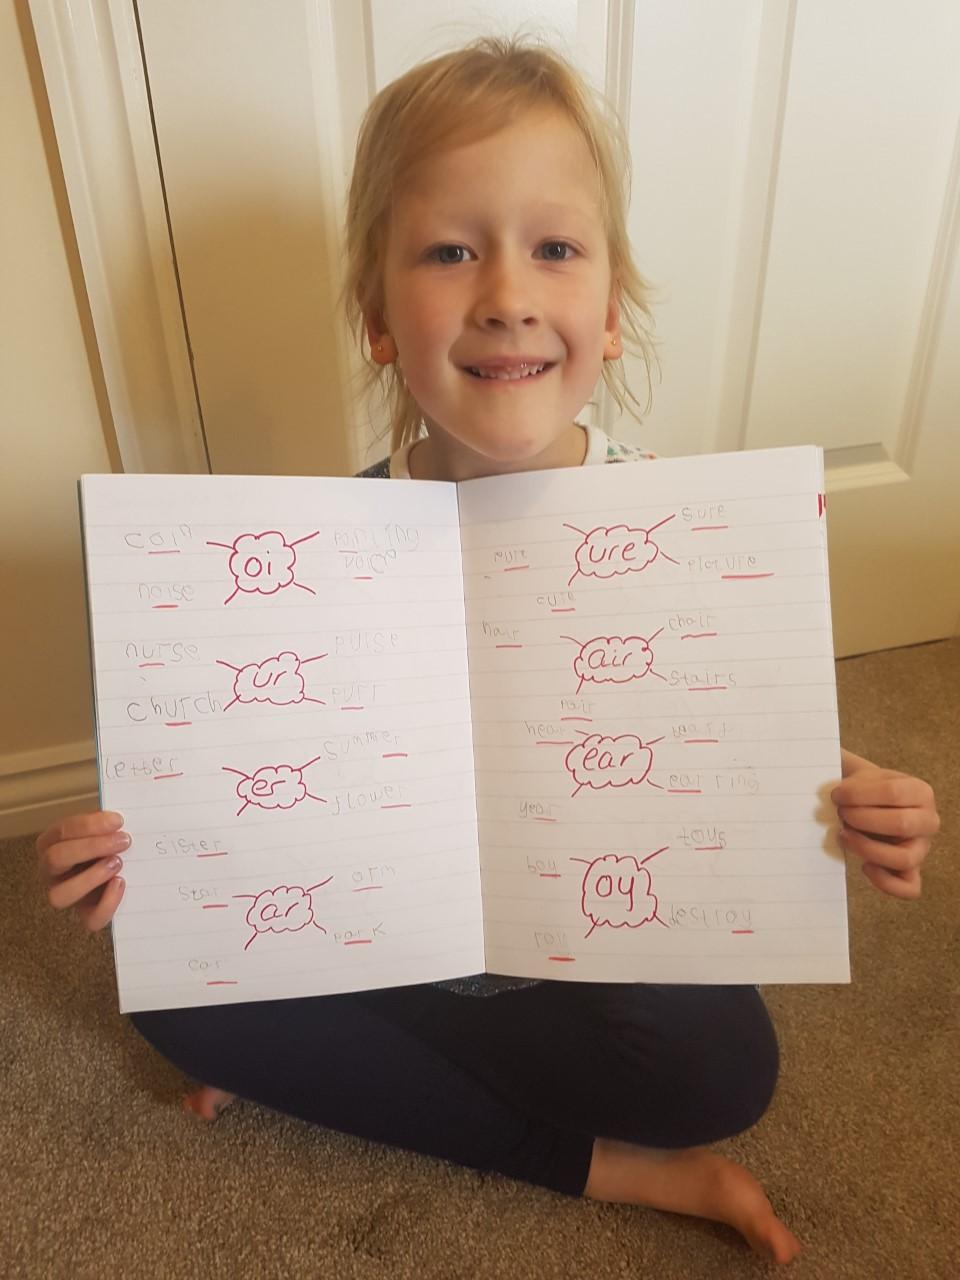 coin
oi
pointing
noise
voice
nurse
ur
purse
church
purr
letter
er
summer
flower
sister
star
ar
arm
park
car
ure
sure
picture
cure
hair
air
chair
stairs
hear
ear
earring
year
boy
oy
toys
destroy